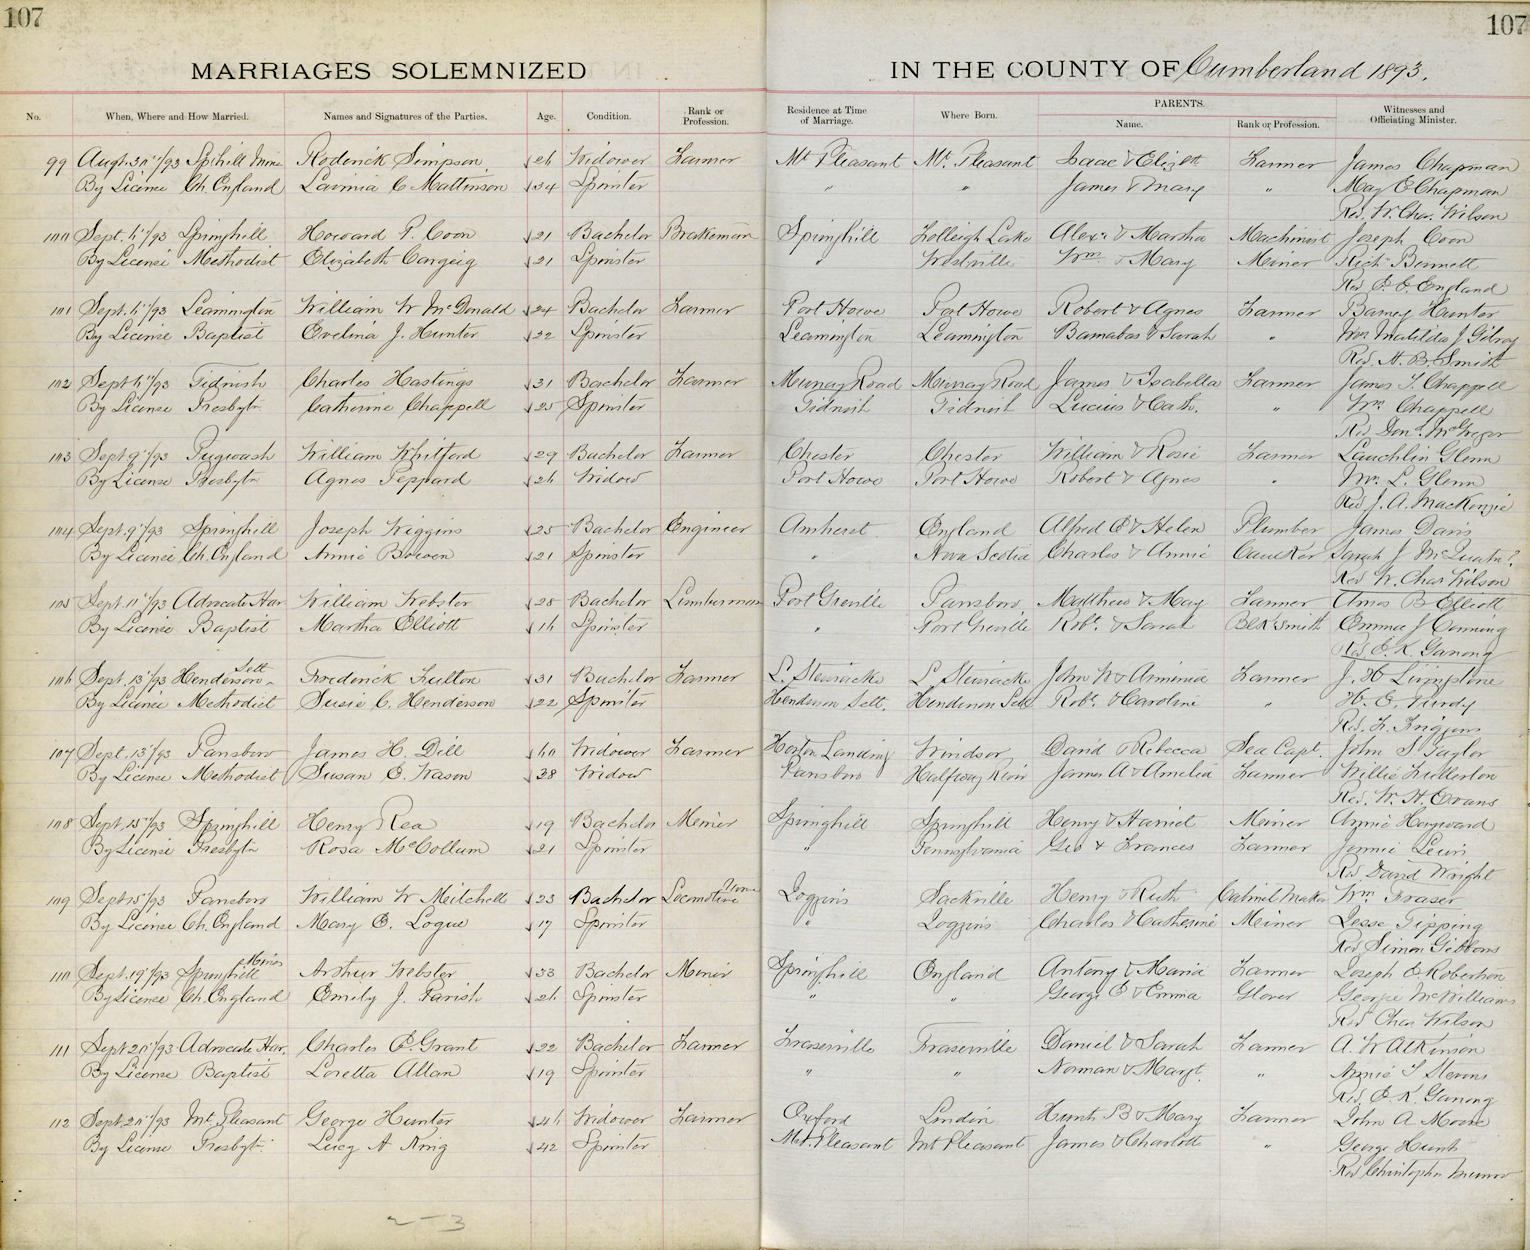 107
107
MARRIAGES SOLEMNIZED
IN THE COUNTY OF Cumberland 1893.
No. When, Where and How Married. Names and Signatures of the Parties. Age. Condition. Rank or Profession. Residence at Time of Marriage. Where Born. PARENTS. Name. Rank or Profession. Witnesses and Officiating Minister.
99 Augt. 30"/93 Sp'hill Mine Roderick Simpson 26 Widower Farmer Mt Pleasant Mt. Pleasant Isaac & Elizth Farmer James Chapman
By License Ch. England Lavinia C Mattinson 34 Spinster " " James & Mary " May E Chapman
Rev. W. Chas. Wilson
100 Sept. 6"/93 Springhill Howard P. Coon 21 Bachelor Brakeman Springhill Folleigh Lake Alexr. & Martha Machinist Joseph Coon
By License Methodist Elizabeth Cargeig 21 Spinster " Westville Wm & Mary Meiner Richd Bennett
Rev England
101 Sept. 6"/93 Leamington William W McDonald 24 Bachelor Farmer Port Howe Port Howe Robert & Agnes Farmer Barney Hunter
By License Baptist Evelina J. Hunter 22 Spinster Leamington Leamington Barnabas & Sarah " Mrs Matilda J Gilroy
Rev. H. B. Smith
102 Sept 6"/93 Tidnish Charles Hastings 31 Bachelor Farmer Murray Road Murray Road James & Isabella Farmer James T. Chappell
By License Presbytn Catherine Chappell 25 Spinster Tidnish Tidnish Lucius & Cath. " Wm Chappell
Rev Dond. McGregor
103 Sept 9"/93 Pugwash William Whitford 29 Bachelor Farmer Chester Chester William & Rosie Farmer Lauchlin Glenn
By License Presbytn Agnes Peppard 26 Widow Port Howe Port Howe Robert & Agnes " Mrs. L. Glenn
Rev J. A. MacKenzie
104 Sept. 9"/93 Springhill Joseph Wiggins 25 Bachelor Engineer Amherst England Alfred E & Helen Plumber James Davis
By License Ch. England Annie Bowen 21 Spinster " Nova Scotia Charles & Annie Caulker Sarah J
Rev W. Chas Wilson
105 Sept. 11"/93 Advocate Har William Webster 28 Bachelor Lumberman Port Greville Parrsboro Matthew & May Farmer Amos B Elliott
By License Baptist Martha Elliott 16 Spinster " Port Greville Robt. & Sarah Blksmith Emma J Canning
Rev E K. Ganong
106 Sept. 13"/93 Henderson Sett Frederick Fulton 31 Bachelor Farmer L. Stewiacke L Stewiacke John W & Armina Farmer J. H Livingstone
By License Methodist Susie C. Henderson 22 Spinster Henderson Sett. Henderson Sett Robt. & Caroline " H. E. Purdy
Rev. F.
107 Sept. 13"/93 Parrsboro James H. Dill 60 Widower Farmer Horton Landing Windsor David & Rebecca Sea Capt. John S Taylor
By License Methodist Susan E. Wason 38 Widow Parrsboro Halfway River James A & Amelia Farmer Willie Fullerton
Rev. W. H. Evans
108 Sept. 15"/93 Springhill Henry Rea 19 Bachelor Meiner Springhill Springhill Henry & Harriet Meiner Annie Hayward
By License Presbytn Rosa McCollum 21 Spinster " Pennsylvania Geo & Frances Farmer Jennie Lewis
Rev. David Wright
109 Sept 15"/93 Parrsboro William W Mitchell 23 Bachelor Locomotive Joggins Sackville Henry & Ruth Cabinet Maker Wm. Fraser
By License Ch. England Mary E. Logue 17 Spinster " Joggins Charles & Catherine Meiner Jesse Tipping
Rev Simon Gibbons
110 Sept. 19"/93 Springhill Mines Arthur Webster 33 Bachelor Meiner Springhill England Antony & Maria Farmer Joseph E. Robertson
By License Ch. England Emily J. Parish 26 Spinster " " George E & Emma Glover Georgie McWilliams
Revd Chas Wilson
111 Sept 20"/93 Advocate Har. Charles E. Grant 22 Bachelor Farmer Fraserville Fraserville Daniel & Sarah Farmer A. W Atkinson
By License Baptist Loretta Allan 19 Spinster " " Norman & Margt. " Annie T Stevens
Rev. E. K. Ganong
112 Sept. 20"/93 Mt. Pleasant George Hunter 46 Widower Farmer Oxford London & Mary Farmer John A Moore
By License Presbytn. Lucy A Ring 42 Spinster Mt. Pleasant Mt Pleasant James & Charlotte " George
Rev Christopher
2-3